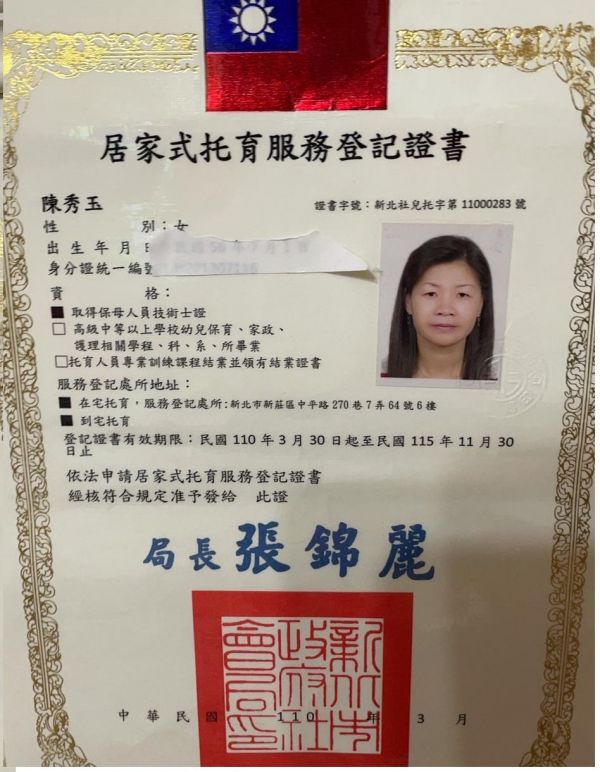 居家式托育服務登記證書
陳秀玉
證書字號：新北社兒托字第 11000283 號
性 別：女
出生年月日
身分證統一編號
資 格：
■ 取得保母人員技術士證
□ 高級中等以上學校幼兒保育、家政、
護理相關學程、科、系、所畢業
□托育人員專業訓練課程結業並領有結業證書
服務登記處所地址：
■ 在宅托育，服務登記處所：新北市新莊區中平路 270 巷 7 弄 64 號 6 樓
■ 到宅托育
登記證書有效期限：民國 110 年 3 月 30 日起至民國 115 年 11 月 30
日止
依法申請居家式托育服務登記證書
經核符合規定准予發給 此證
局長 張錦麗
新北市政府社會局印
中華民國 110 年 3 月